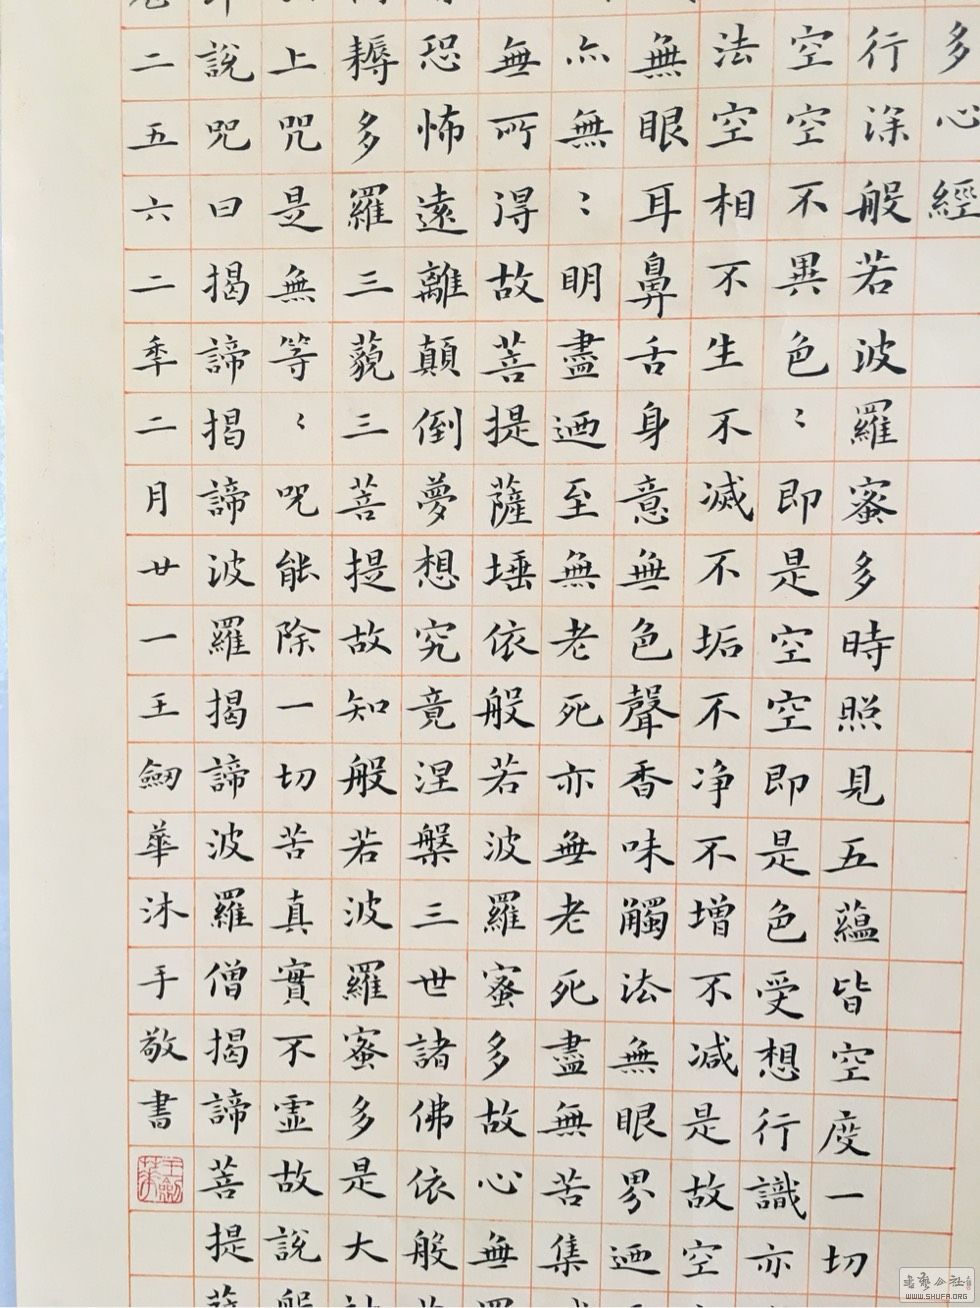 多心經
行深般若波羅蜜多時照見五蘊皆空度一切
空空不異色〻即是空空即是色受想行識亦
法空相不生不滅不垢不净不增不減是故空
無眼耳鼻舌身意無色聲香味觸法無眼界迺
亦無〻明盡迺至無老死亦無老死盡無苦集
無所得故菩提薩埵依般若波羅蜜多故心無
恐怖遠離顛倒夢想究竟涅槃三世諸佛依般
耨多羅三藐三菩提故知般若波羅蜜多是大
上咒是無等〻咒能除一切苦真實不虛故說
說咒曰揭諦揭諦波羅揭諦波羅僧揭諦菩提
二五六二季二月廿一王劒華沐手敬書
WWW.SHUFA.ORG